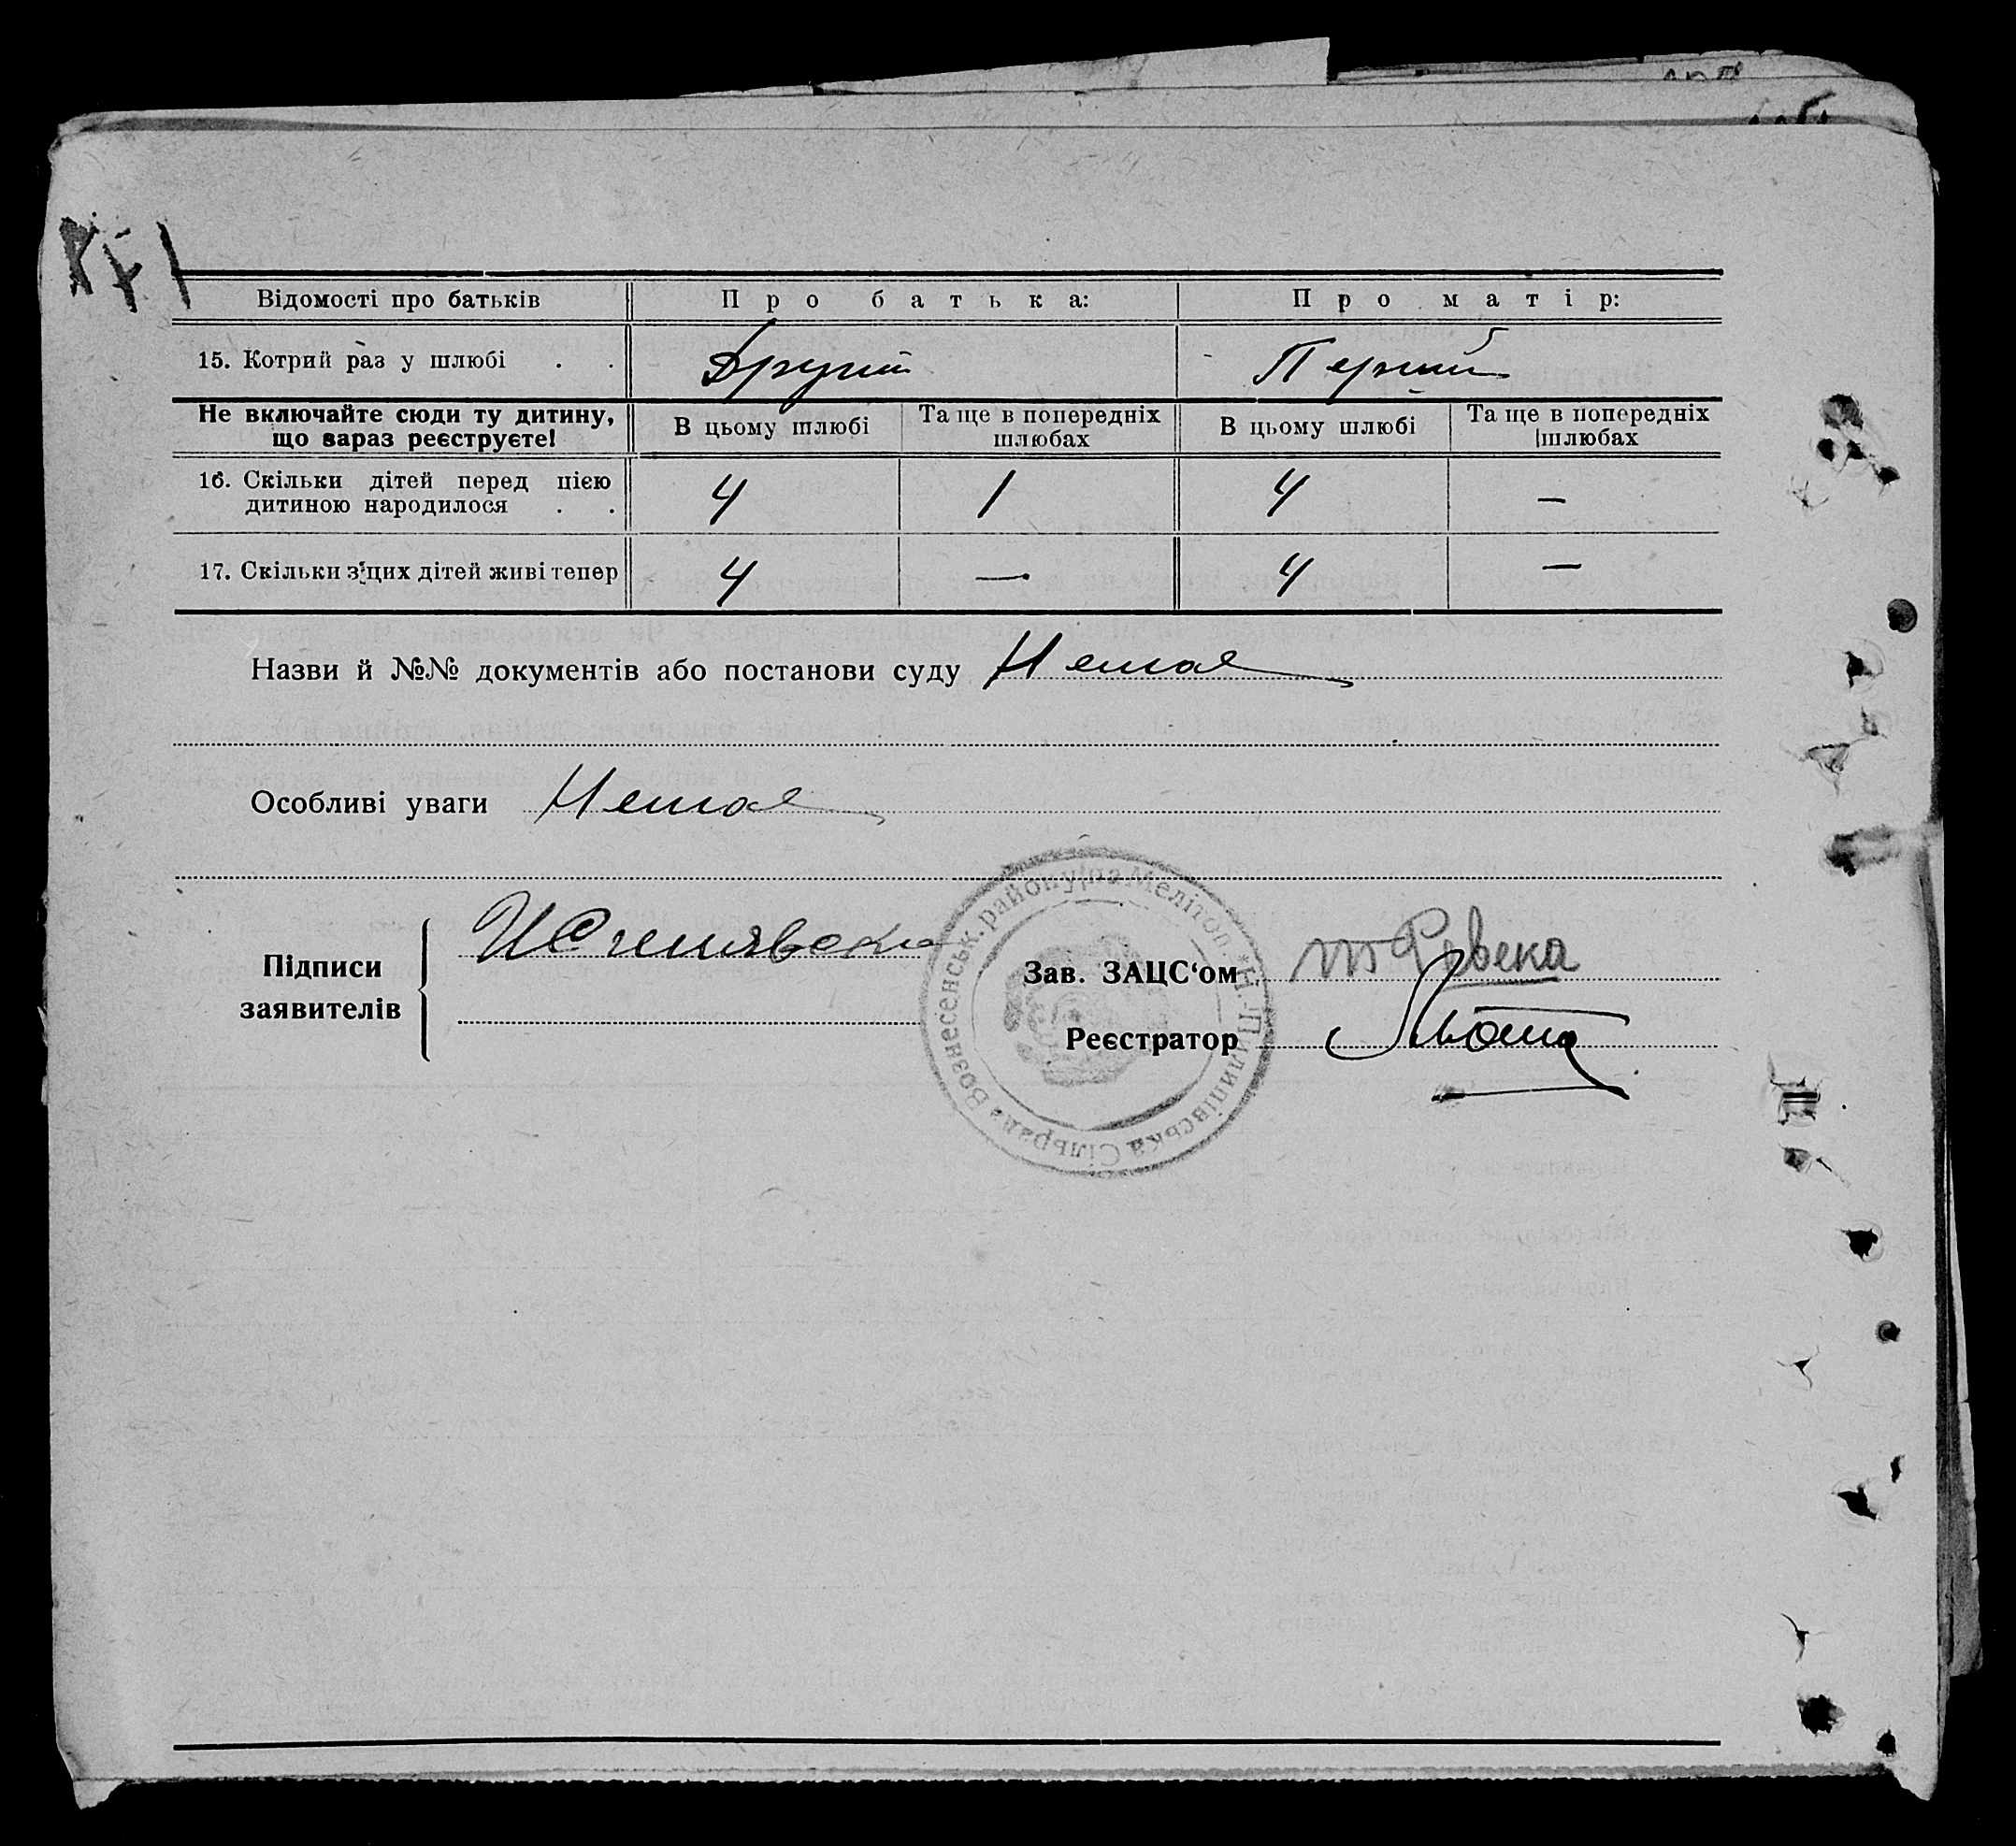 Відомості про батьків Про батька: Про матір:
15. Котрий раз у шлюбі . . Другий Перший
Не включайте сюди ту дитину, що зараз реєструєте!
В цьому шлюбі Та ще в попередніх шлюбах В цьому шлюбі Та ще в попередніх шлюбах
16. Скільки дітей перед цією
дитиною народилося . . 4 1 4 —
17. Скільки з цих дітей живі тепер 4 — 4 —
Назви й №№ документів або постанови суду Немає
Особливі уваги Немає
Підписи
заявителів
Зав. ЗАЦС‘ом
Реєстратор
Н.-Пилипівська Сільрада Вознесенськ. району на Мелітоп.